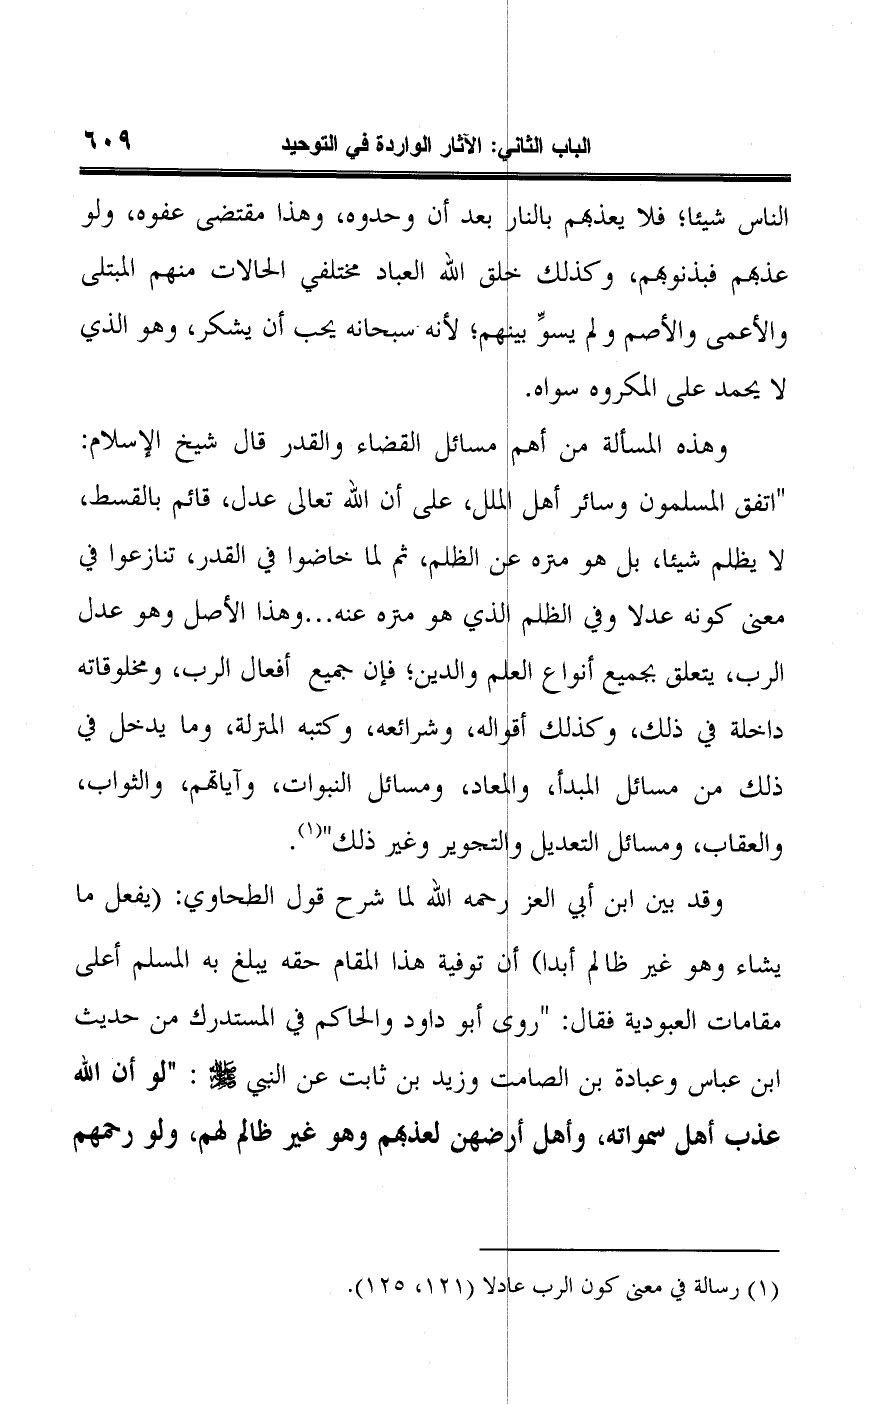 الباب الثاني: الآثار الواردة في التوحيد ٦٠٩
الناس شيئا؛ فلا يعذبهم بالنار بعد أن وحدوه، وهذا مقتضى عفوه، ولو
عذبهم فبذنوبهم، وكذلك خلق الله العباد مختلفي الحالات منهم المبتلى
والأعمى والأصم ولم يسوِّ بينهم؛ لأنه سبحانه يحب أن يشكر، وهو الذي
لا يحمد على المكروه سواه.
وهذه المسألة من أهم مسائل القضاء والقدر قال شيخ الإسلام:
"اتفق المسلمون وسائر أهل الملل، على أن الله تعالى عدل، قائم بالقسط،
لا يظلم شيئا، بل هو منزه عن الظلم، ثم لما خاضوا في القدر، تنازعوا في
معنى كونه عدلا وفي الظلم الذي هو منزه عنه...وهذا الأصل وهو عدل
الرب، يتعلق بجميع أنواع العلم والدين؛ فإن جميع أفعال الرب، ومخلوقاته
داخلة في ذلك، وكذلك أقواله، وشرائعه، وكتبه المنزلة، وما يدخل في
ذلك من مسائل المبدأ، والمعاد، ومسائل النبوات، وآياتهم، والثواب،
والعقاب، ومسائل التعديل والتجوير وغير ذلك"(١).
وقد بين ابن أبي العز رحمه الله لما شرح قول الطحاوي: (يفعل ما
يشاء وهو غير ظالم أبدا) أن توفية هذا المقام حقه يبلغ به المسلم أعلى
مقامات العبودية فقال: "روى أبو داود والحاكم في المستدرك من حديث
ابن عباس وعبادة بن الصامت وزيد بن ثابت عن النبي ﷺ : "لو أن الله
عذب أهل سمواته، وأهل أرضهن لعذبهم وهو غير ظالم لهم، ولو رحمهم
(١) رسالة في معنى كون الرب عادلا (١٢١، ١٢٥).